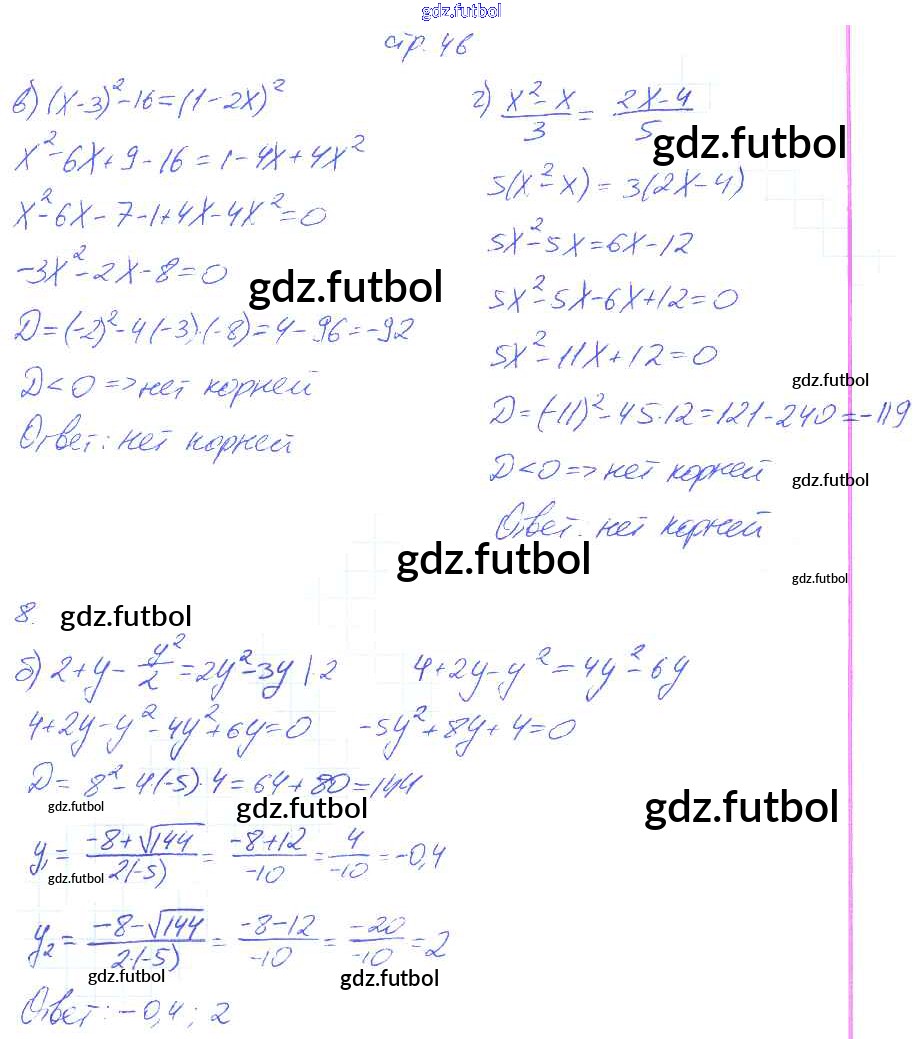 gdz.futbol
стр. 46
в) (x-3)²-16=(1-2x)²
x²-6x+9-16=1-4x+4x²
x²-6x-7-1+4x-4x²=0
-3x²-2x-8=0
gdz.futbol
D=(-2)²-4(-3)·(-8)=4-96=-92
D<0=>нет корней
Ответ: нет корней
г) (x²-x)/3 = (2x-4)/5
gdz.futbol
5(x²-x)=3(2x-4)
5x²-5x=6x-12
5x²-5x-6x+12=0
5x²-11x+12=0
gdz.futbol
D=(-11)²-4·5·12=121-240=-119
D<0=>нет корней
gdz.futbol
Ответ: нет корней
gdz.futbol
gdz.futbol
8. gdz.futbol
б) 2+y-y²/2=2y²-3y |·2 4+2y-y²=4y²-6y
4+2y-y²-4y²+6y=0 -5y²+8y+4=0
D= 8²-4·(-5)·4=64+80=144
gdz.futbol gdz.futbol gdz.futbol
y₁= (-8+√144)/(2(-5)) = (-8+12)/(-10) = 4/(-10) =-0,4
gdz.futbol
y₂= (-8-√144)/(2·(-5)) = (-8-12)/(-10) = (-20)/(-10) =2
gdz.futbol gdz.futbol
Ответ: -0,4; 2